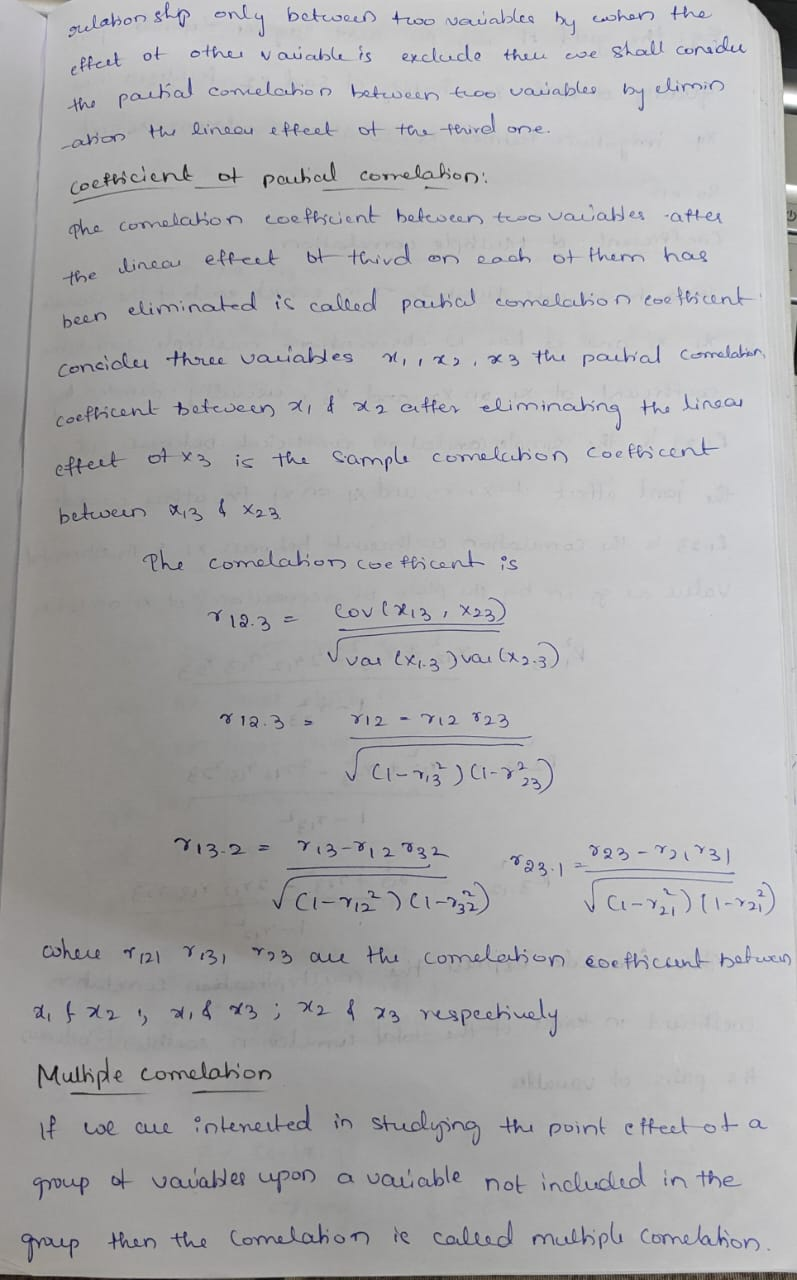 relationship only between two variables by when the
effect of other variable is exclude then we shall consider
the partial correlation between two variables by elimin
-ation the linear effect of the third one.
Coefficient of partial correlation:
The correlation coefficient between two variables after
the linear effect of third on each of them has
been eliminated is called partial correlation coefficent
consider three variables x₁, x₂, x3 the partial correlation
coefficent between x₁ & x₂ after eliminating the linear
effect of x3 is the sample correlation coefficent
between x₁3 & x₂3
The correlation coefficent is
r12.3 = Cov(x13, x23) / √var(x1.3) var(x2.3)
r12.3 = r12 - r12 r23 / √(1-r13²)(1-r²23)
r13.2 = r13-r12 r32 / √(1-r12²)(1-r32²) r23.1 = r23 - r21 r31 / √(1-r21²)(1-r21²)
where r12, r13, r23 are the correlation coefficient between
x₁ & x2 ; x₁ & x3 ; x2 & x3 respectively
Multiple correlation
If we are interested in studying the point effect of a
group of variables upon a variable not included in the
group then the correlation is called multiple correlation.